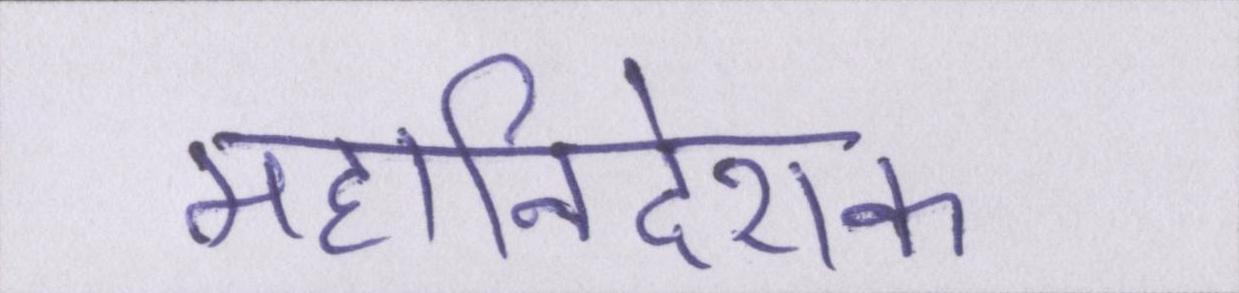 महानिदेशक